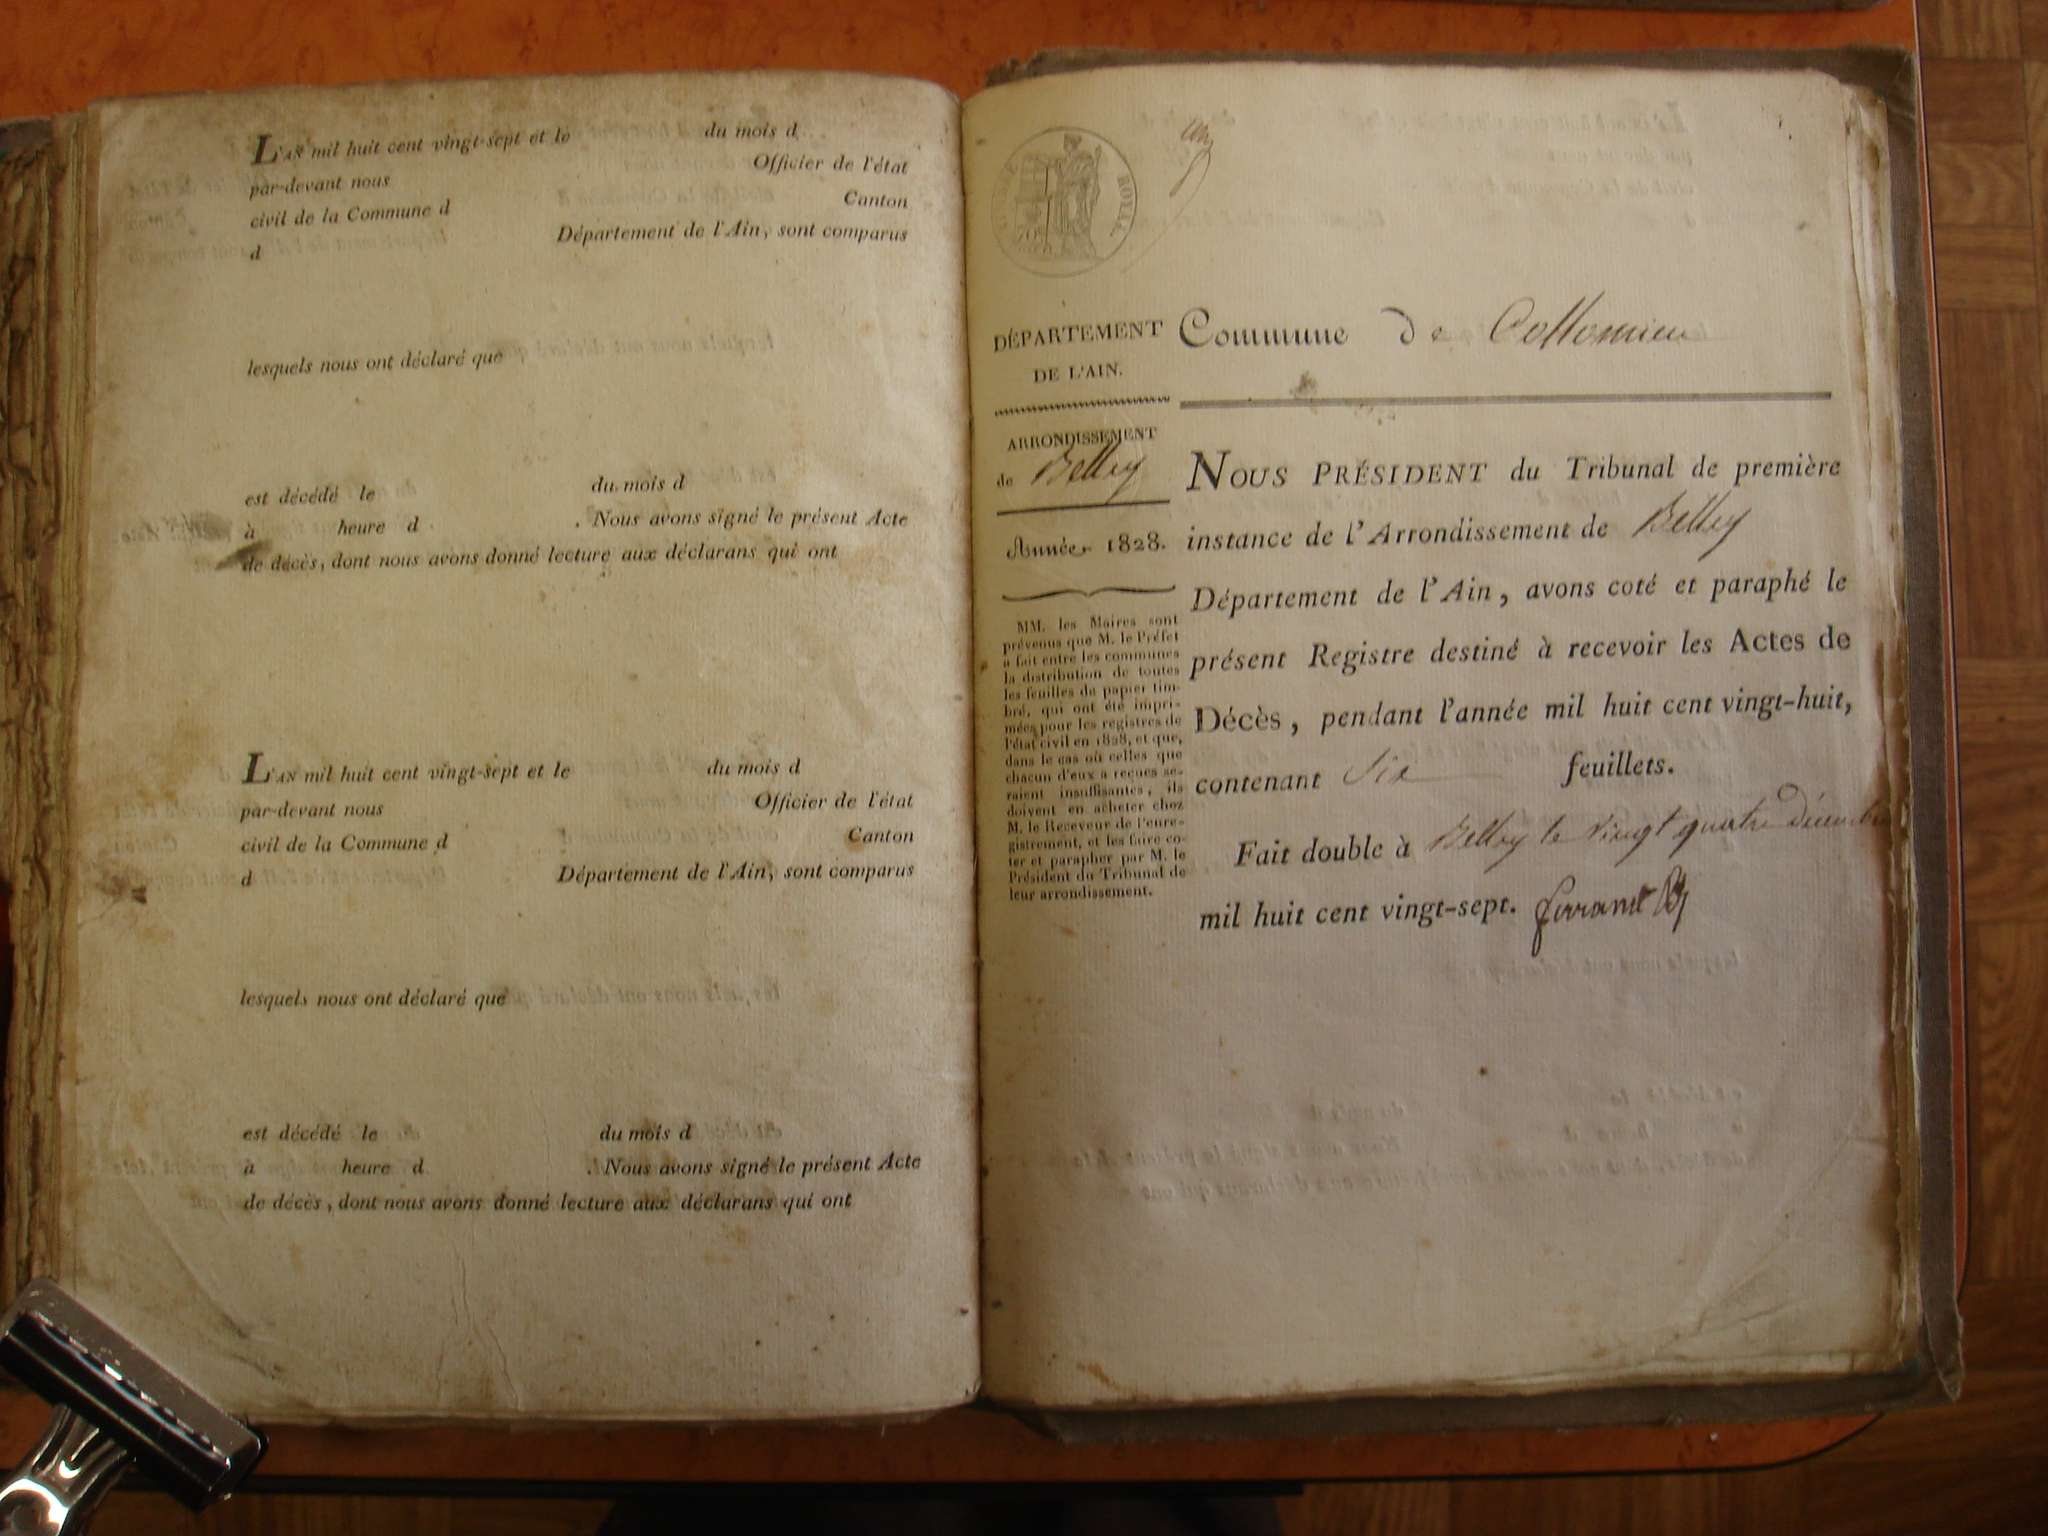 L'AN mil huit cent vingt-sept et le du mois d
par-devant nous Officier de l'état
civil de la Commune d Canton
d Département de l'Ain, sont comparus
lesquels nous ont déclaré que
est décédé le du mois d
à heure d . Nous avons signé le présent Acte
de décès, dont nous avons donné lecture aux déclarans qui ont
L'AN mil huit cent vingt-sept et le du mois d
par-devant nous Officier de l'état
civil de la Commune d Canton
d Département de l'Ain, sont comparus
lesquels nous ont déclaré que
est décédé le du mois d
à heure d . Nous avons signé le présent Acte
de décès, dont nous avons donné lecture aux déclarans qui ont
ROYAL.
DÉPARTEMENT
DE L'AIN.
ARRONDISSEMENT
de Belley
Année 1828.
MM. les Maires sont
prévenus que M. le Préfet
a fait entre les communes
la distribution de toutes
les feuilles de papier tim-
bré, qui ont été impri-
mées pour les registres de
l'état civil en 1828, et que,
dans le cas où celles que
chacun d'eux a reçues se-
raient insuffisantes, ils
doivent en acheter chez
M. le Receveur de l'enre-
gistrement, et les faire co-
ter et parapher par M. le
Président du Tribunal de
leur arrondissement.
Commune de Collomieu
NOUS PRÉSIDENT du Tribunal de première
instance de l'Arrondissement de Belley
Département de l'Ain, avons coté et paraphé le
présent Registre destiné à recevoir les Actes de
Décès, pendant l'année mil huit cent vingt-huit,
contenant Six feuillets.
Fait double à Belley le vingt quatre décembre
mil huit cent vingt-sept.